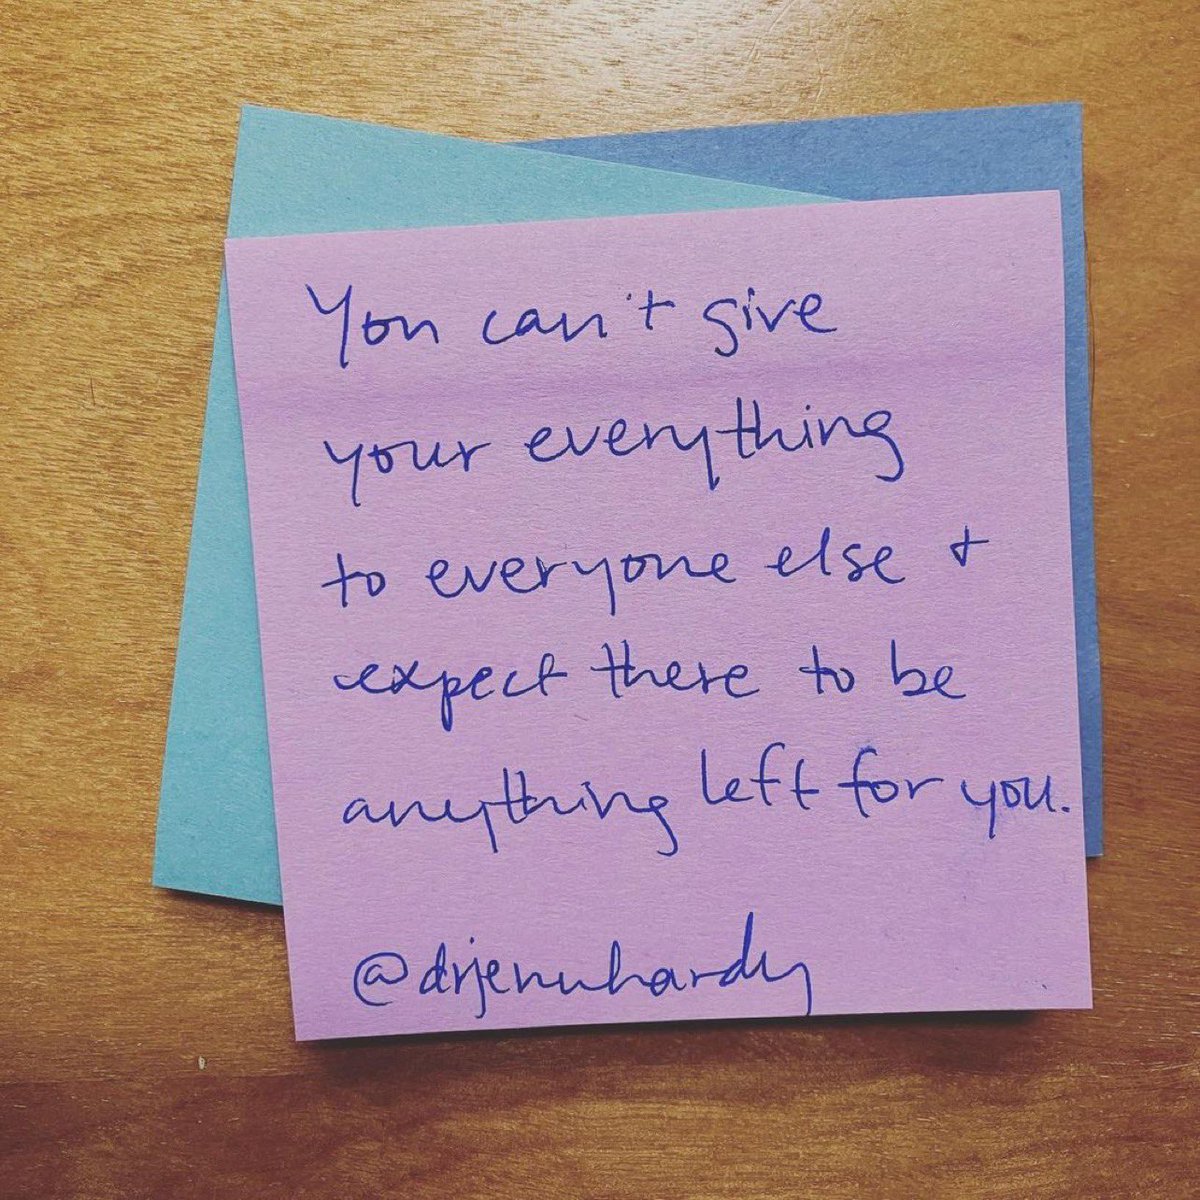 You can't give
your everything
to everyone else +
expect there to be
anything left for you.
@drjennhardy